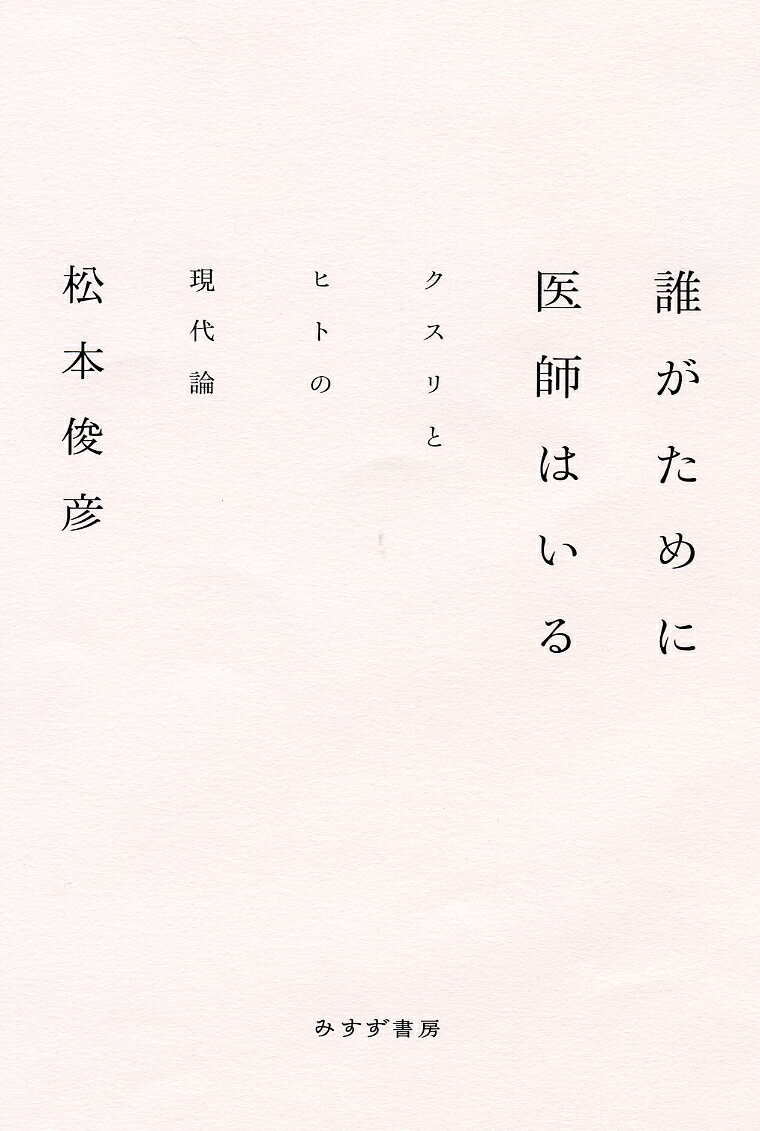 誰がために
医師はいる
クスリと
ヒトの
現代論
松本俊彦
みすず書房